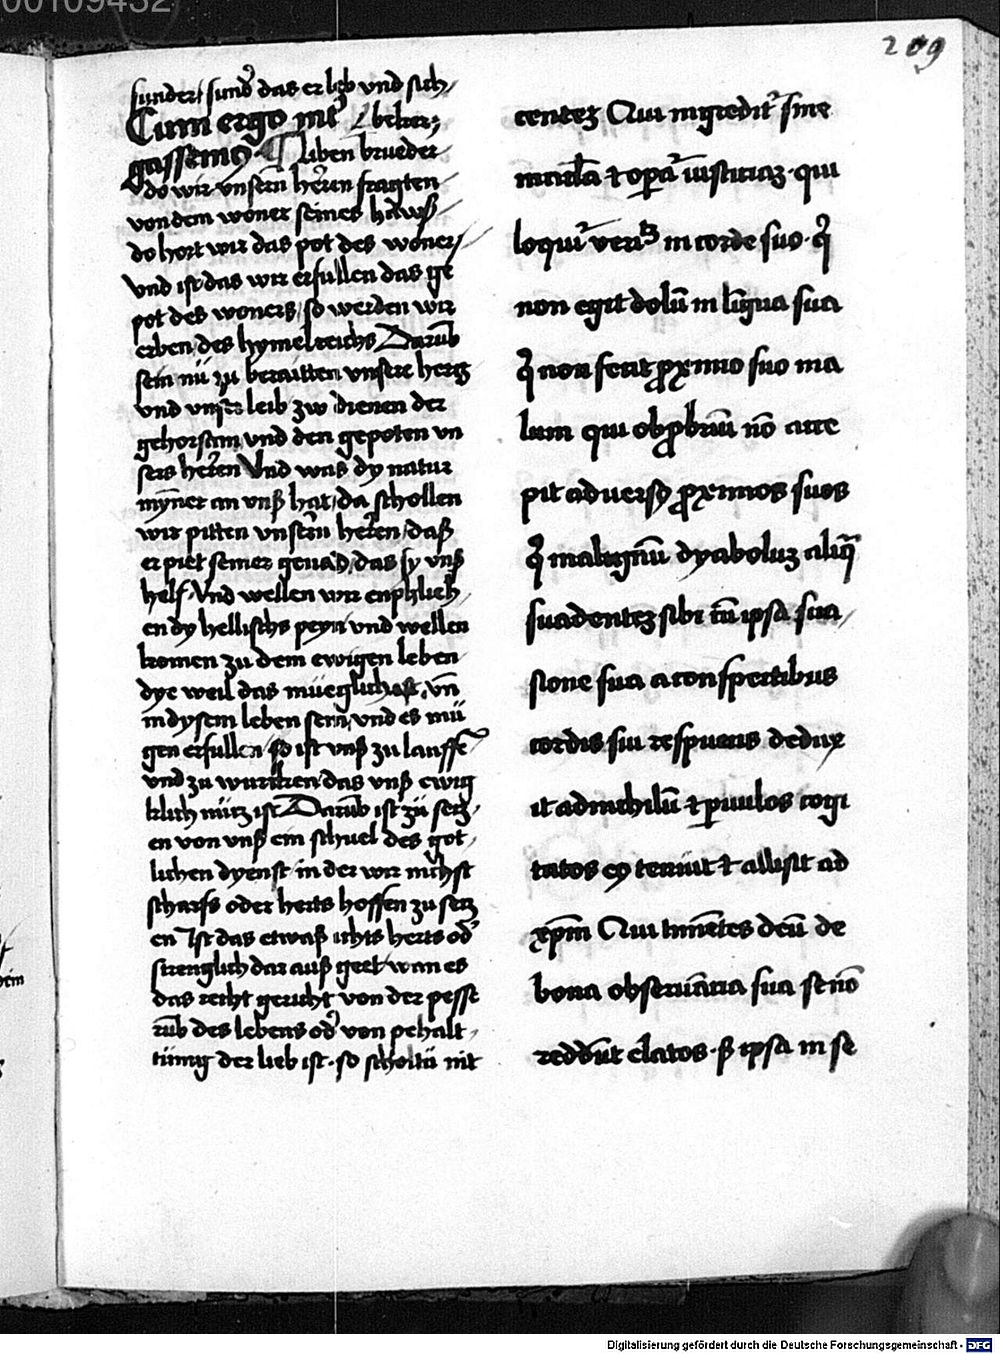 00109432
209
sunder sund' das er leb vnd sich
Cum ergo int'
Liben brueder
do wir vnsern herren fragten
von dem woner seines hawß
do hort wir das pot des woner
vnd ist das wir erfullen das ge
pot des woners so werden wir
erben des hymelreichs Darūb
sein nü zu beraitten vnsere hercz
vnd vnser leib zw dienen der
gehorsam vnd den gepoten vn
sers herren Vnd was dy natur
mynner an vnß hat da schollen
wir pitten vnsern herren daß
er piet seiner genad das sy vnß
helf Vnd wellen wir enphlieh
en dy hellischs peyn vnd wellen
komen zu dem ewigen leben
dye weil das müeglich ist vn̄
in dysem leben sein vnd es mü
gen erfullen so ist vnß zu lauffe
vnd zu wurcken das vnß ewig
klich nücz ist Darūb ist zü secz
en von vnß ein schuel des got
lichen dyenst in der wir nichst
scharfs oder herts hoffen zu secz
en Ist das etwaß ichts herts od'
strenglich dar auß geet wan es
das recht gericht von der pesse
rūb des lebens od' von pehalt
tünig der lieb ist so scholtü nit
centez Qui ingredit' sine
macl'a et op'a iusticiaz qui
loquit' veri... in corde suo q'
non egit dolū in lingua sua
q' non fecit proximo suo ma
lum qui obprobriū nō acce
pit adversus proximos suos
q' malignū dyaboluz aliq̄
suadentez sibi cū ipsa sua
sione sua a conspectibus
cordis sui respuens dedux
it ad nichilū et paruulos cogi
tatos eius tenuit et allisit ad
xp̄m Qui timētes deū de
bona obseruācia sua se nō
reddūt elatos ß ipsa in se
Digitalisierung gefördert durch die Deutsche Forschungsgemeinschaft - DFG